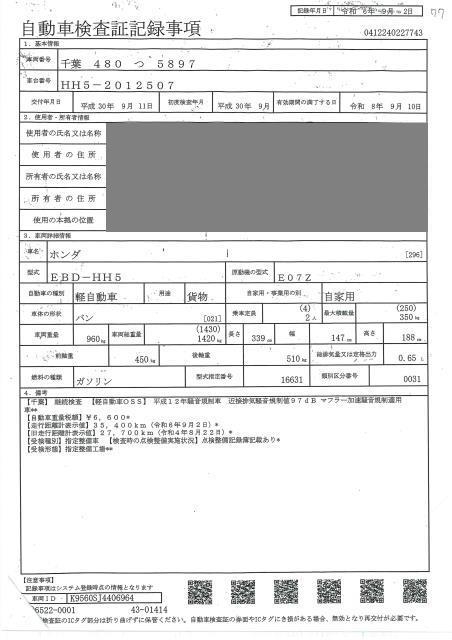 記録年月日 令和 6年 9月 2日
77
自動車検査証記録事項
0412240227743
1. 基本情報
車両番号 千葉 480 つ 5897
車台番号 HH5-2012507
交付年月日 平成30年 9月 11日 初度検査年月 平成30年 9月 有効期間の満了する日 令和 8年 9月 10日
2. 使用者・所有者情報
使用者の氏名又は名称
使用者の住所
所有者の氏名又は名称
所有者の住所
使用の本拠の位置
3. 車両詳細情報
車名 ホンダ [296]
型式 EBD-HH5 原動機の型式 E07Z
自動車の種別 軽自動車 用途 貨物 自家用・事業用の別 自家用
車体の形状 バン [021] 乗車定員 (4) 2人 最大積載量 (250) 350kg
車両重量 960kg 車両総重量 (1430) 1420kg 長さ 339cm 幅 147cm 高さ 188cm
前軸重 450kg 後軸重 510kg 総排気量又は定格出力 0.65L
燃料の種類 ガソリン 型式指定番号 16631 類別区分番号 0031
4. 備考
【千葉】 継続検査 【軽自動車OSS】 平成12年騒音規制車 近接排気騒音規制値97dB マフラー加速騒音規制適用
車**
【自動車重量税額】¥6,600*
【走行距離計表示値】35,400km(令和6年9月2日)*
【旧走行距離計表示値】27,700km(令和4年8月22日)*
【受検種別】指定整備車 【検査時の点検整備実施状況】点検整備記録簿記載あり*
【受検形態】指定整備工場**
【注意事項】
記録事項はシステム登録時点の情報となります
車両ID K9560SJ4406964
06522-0001 43-01414
検査証のICタグ部分は折り曲げずに保管ください。自動車検査証の券面やICタグにき損がある場合、無効となり再交付が必要です。